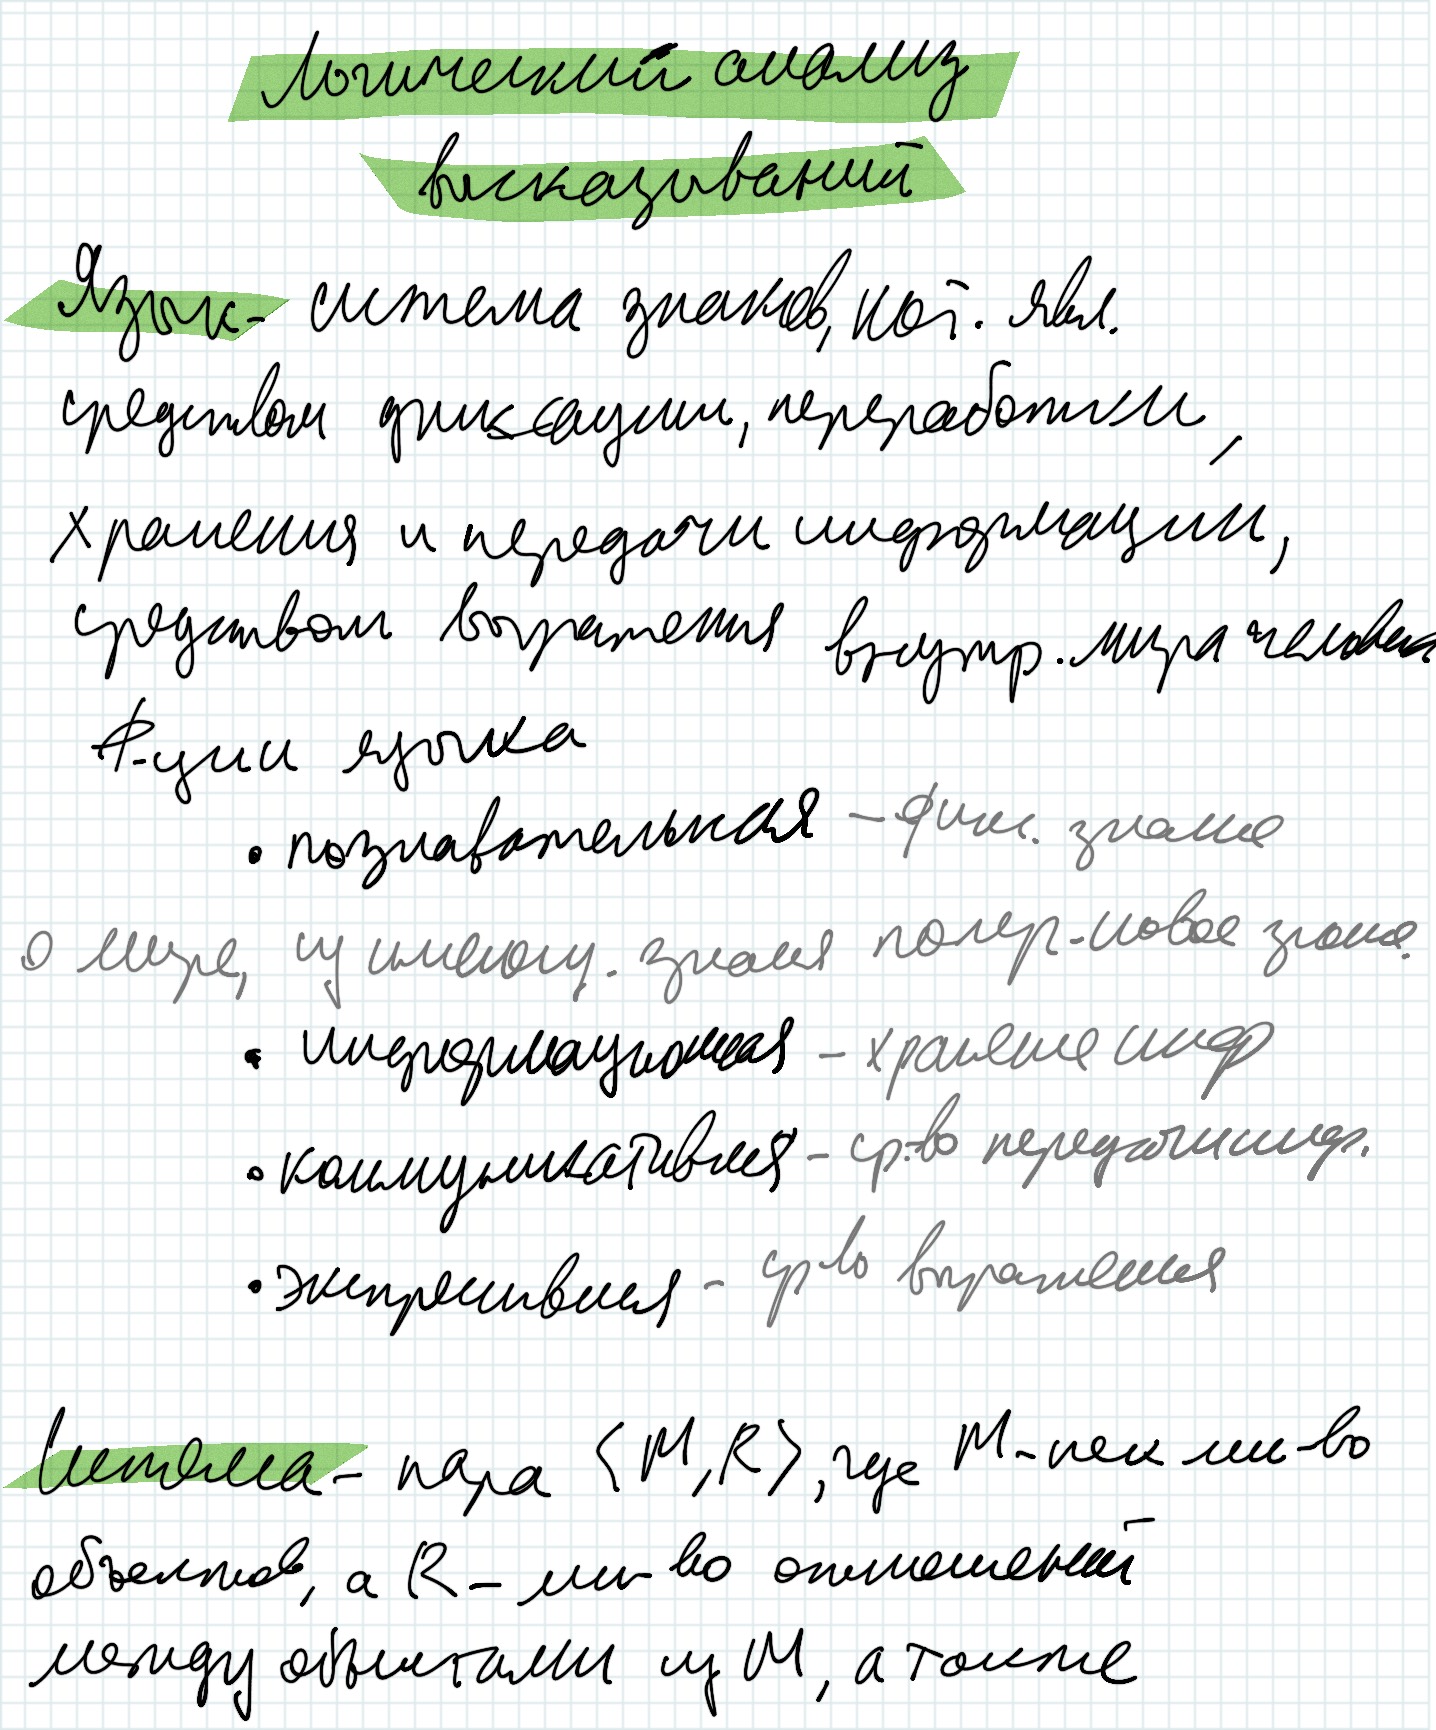 Логический анализ
высказываний
Язык - система знаков, кот. явл.
средством фиксации, переработки,
хранения и передачи информации,
средством выражения внутр. мира человека
Ф-ции языка
• познавательная - фикс. знание
о мире, из имеющ. знания новое знание.
• информационная - хранение инф
• коммуникативная - ср-во передачи инф.
• экспрессивная - ср-во выражения
Система - пара ⟨M, R⟩, где M - нек мн-во
объектов, а R - мн-во отношений
между объектами из M, а также